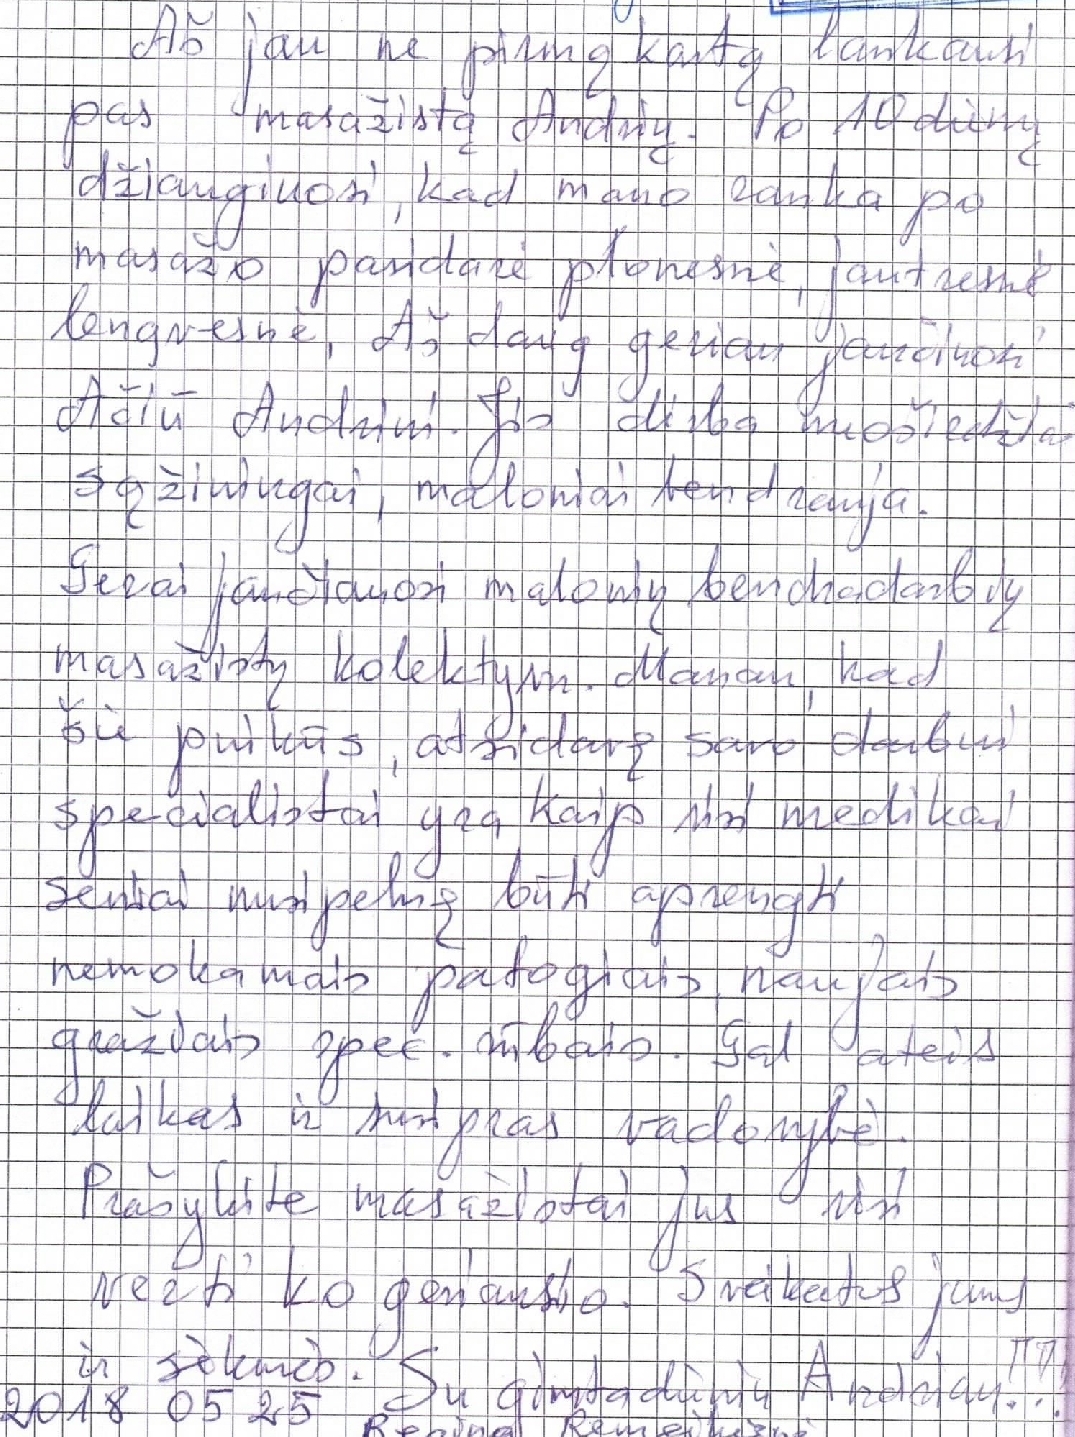 Aš jau ne pirmą kartą lankausi
pas masažistą Andrių. Po 10 dienų
džiauginosi, kad mano ranka po
masažo pasidarė plonesnė, jautresnė
lengvesnė, Aš daug geriau jaučiuosi
Ačiū Andriui. Jis dirba nuoširdžiai
sąžiningai, maloniai bendrauja.
Gerai jaučiauosi malonių bendradarbių
masažistų kolektyve. Manau, kad
šie puikūs, atsidavę savo darbui
specialistai yra kaip visi medikai
seniai nusipelnę būti aprengti
nemokamais patogiais, naujais
gražiais spec. rūbais. Gal ateis
laikas ir susipras vadovybė.
Prašykite masažistai jus visi
verti ko geriausio. Sveikatos jums
ir sėkmės. Su gimtadieniu Andriau!..!
2018 05 25
Regina